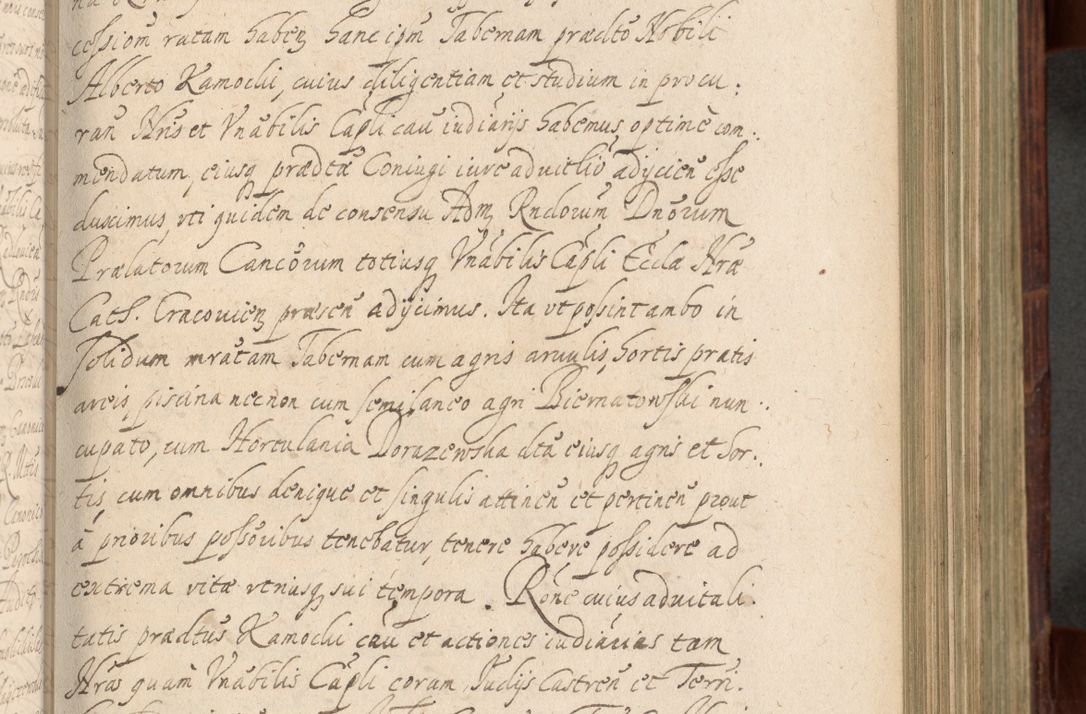 cessiom ratam haben hanc ipm Tabernam prædto Nobili
Alberto Kamocki, cuius diligentiam et studium in procu:
ran Nris et Vnabilis Capli cau iudiarijs habemus optime com:
mendatum, eiusq prædtæ Coniugi iure aduitlio adijcien esse
duximus, vti quidem de consensu Adm Rndorum Dnorum
Prælatorum Cancorum totiusq Vnabilis Capli Ecclæ Nræ
Cath. Cracouien præsen adijcimus. Ita vt possint ambo in
solidum mratam Tabernam cum agris aruulis, hortis pratis
areis, piscina necnon cum semilaneo agri Biernatowski nun:
cupato, cum Hortulania Dorazewska dta eiusq agris et hor:
tis, cum omnibus denique et singulis attinen et pertinen prout
à prioribus possoribus tenebatur, tenere habere possidere ad
extrema vitæ vtriusq sui tempora. Rone cuius aduitali:
tatis prædtus Kamocki cau et actiones iudiarias tam
Nras quàm Vnabilis Capli coram Judijs Castren et Terri: